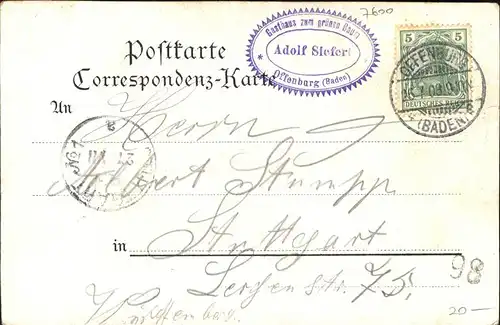 7600
Gasthaus zum grünen Baum
Adolf Siefert
Offenburg (Baden)
5 5
DEUTSCHES REICH
OFFENBURG
(BADEN)
Postkarte
Correspondenz-Karte
An
Herrn
Albert Stumpp
in Stuttgart
Lerchenstr. 75.
Württemberg.
No 1
98
20-